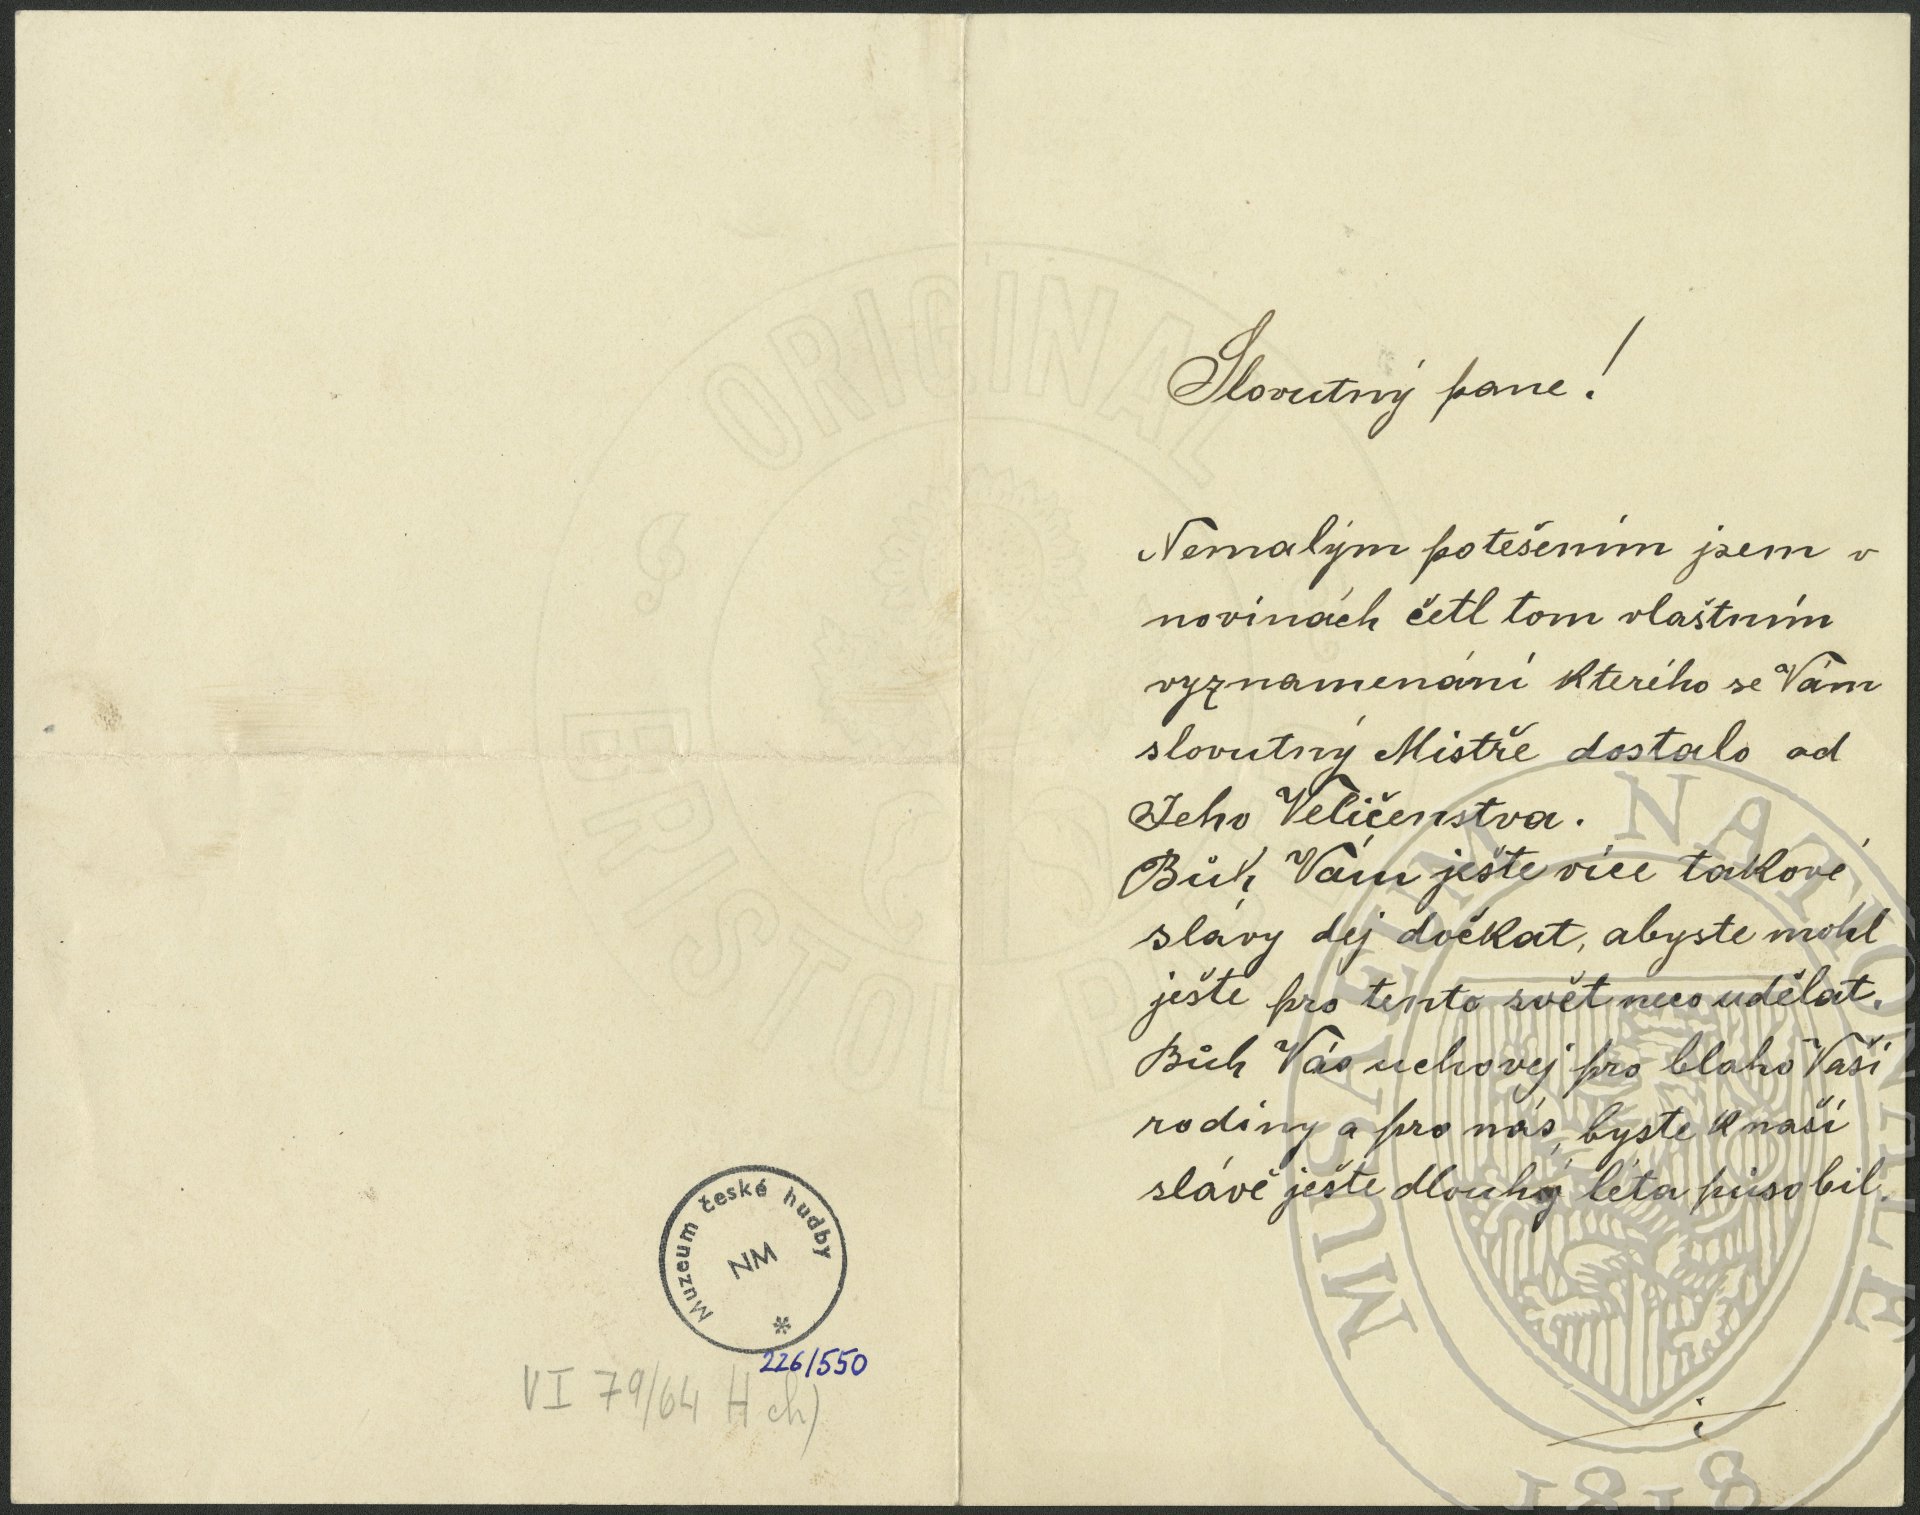 Muzeum české hudby
NM
*
226/550
VI 79/64 H ch)
Slovutný pane!
Nemalým potěšením jsem v
novinách četl tom vlaštním
vyznamenání kterého se Vám
slovutný Mistře dostalo od
Jeho Veličenstva.
Bůh Vám ješte více takové
slávy dej dočkat, abyste mohl
ješte pro tento svět neco udělat.
Bůh Vás uchovej pro blaho Vaší
rodiny a pro nás, byste k naší
slávě ješte dlouhý léta působil.
ORIGINAL
MUSAEUM NATIONALE
1818